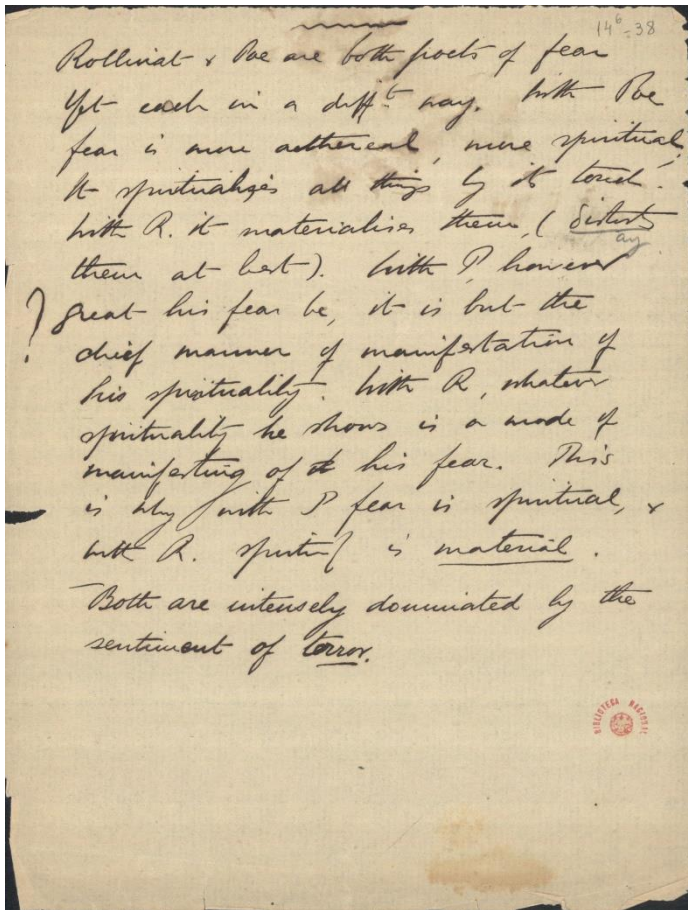 14⁶-38
Rollinat & Poe are both poets of fear
Yet each in a diffᵗ way. With Poe
fear is more aethereal, more spiritual.
It spiritualizes all things by its touch.
With R. it materialises them, (distorts
them at best). With P, however
great his fear be, it is but the
chief manner of manifestation of
his spirituality. With R, whatever
spirituality he shows is a mode of
manifesting of his fear. This
is why with P fear is spiritual, &
with R. is material.
Both are intensely dominated by the
sentiment of terror.
BIBLIOTECA NACIONAL